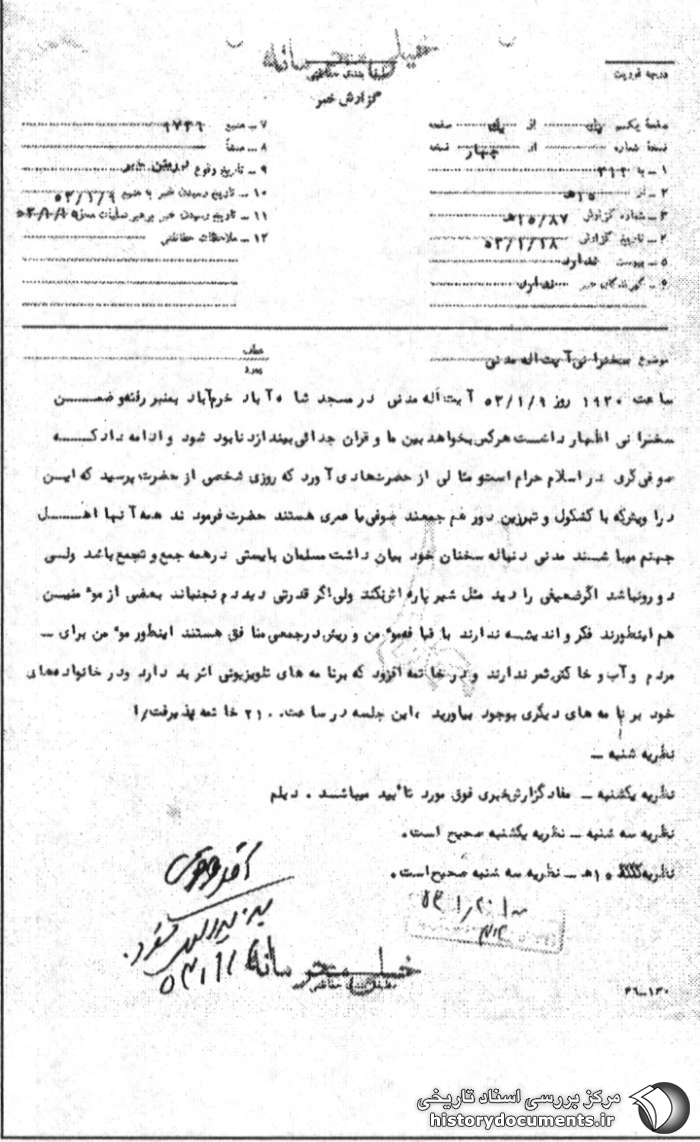 خیلی محرمانه
طبقه بندی حفاظتی
درجه فوریت
گزارش خبر
صفحه یکم یک از یک صفحه
نسخه شماره از چهار نسخه
۱ ـ به ۳۱۲
۲ ـ از ۱۵ ه‍
۳ ـ شماره گزارش ۱۵/۸۷ه‍
۴ ـ تاریخ گزارش ۵۳/۱/۱۸
۵ ـ پیوست ندارد
۶ ـ گیرندگان خبر ندارد
۷ ـ منبع ۱۷۳۶
۸ ـ منشأ
۹ ـ تاریخ وقوع
۱۰ ـ تاریخ رسیدن خبر به منبع ۵۳/۱/۹
۱۱ ـ تاریخ رسیدن خبر برهبر عملیات
۱۲ ـ ملاحظات حفاظتی
موضوع سخنرانی آیت اله مدنی
عطف
پیرو
ساعت ۱۹۳۰ روز ۵۳/۱/۹ آیت اله مدنی در مسجد شاه آباد خرم آباد بمنبر رفته و ضمن
سخنرانی اظهار داشت هرکس بخواهد بین ما و قران جدائی بیندازد نابود شود و ادامه داد که
صوفی گری در اسلام حرام است و مثالی از حضرت هادی آورد که روزی شخصی از حضرت پرسید که این
دراویش که با کشکول و تبرزین دور هم جمعند صوفی یا عمری هستند حضرت فرمودند همه آنها اهل
جهنم میباشند مدنی دنباله سخنان خود بیان داشت مسلمان بایستی در همه جمع و تجمع باشد ولی
دورو نباشد اگر ضعیفی را دید مثل شیر پاره اش نکند ولی اگر قدرتی دید دم نجنباند بعضی از موٴمنین
هم اینطورند فکر و اندیشه ندارند با قیافه موٴمن و ریش در جمعی منافق هستند اینطور موٴمن برای ـ
مردم و آب و خاکش ثمر ندارند و در خاتمه افزود که برنامه های تلویزیونی اثر بد دارد و در خانواده های
خود برنامه های دیگری بوجود بیاورید ، این جلسه در ساعت ۲۱۰۰ خاتمه پذیرفت
نظریه شنبه ـ
نظریه یکشنبه ـ مفاد گزارش خبری فوق مورد تأیید میباشد . دیلم
نظریه سه شنبه ـ نظریه یکشنبه صحیح است .
نظریه ۱۵ه‍ ـ نظریه سه شنبه صحیح است .
خیلی محرمانه
طبقه بندی حفاظتی
۳۶ـ۱۳۰
مرکز بررسی اسناد تاریخی
historydocuments.ir